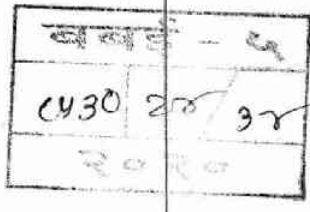 बबई - ५
८५३० २४ ३४
२०२०